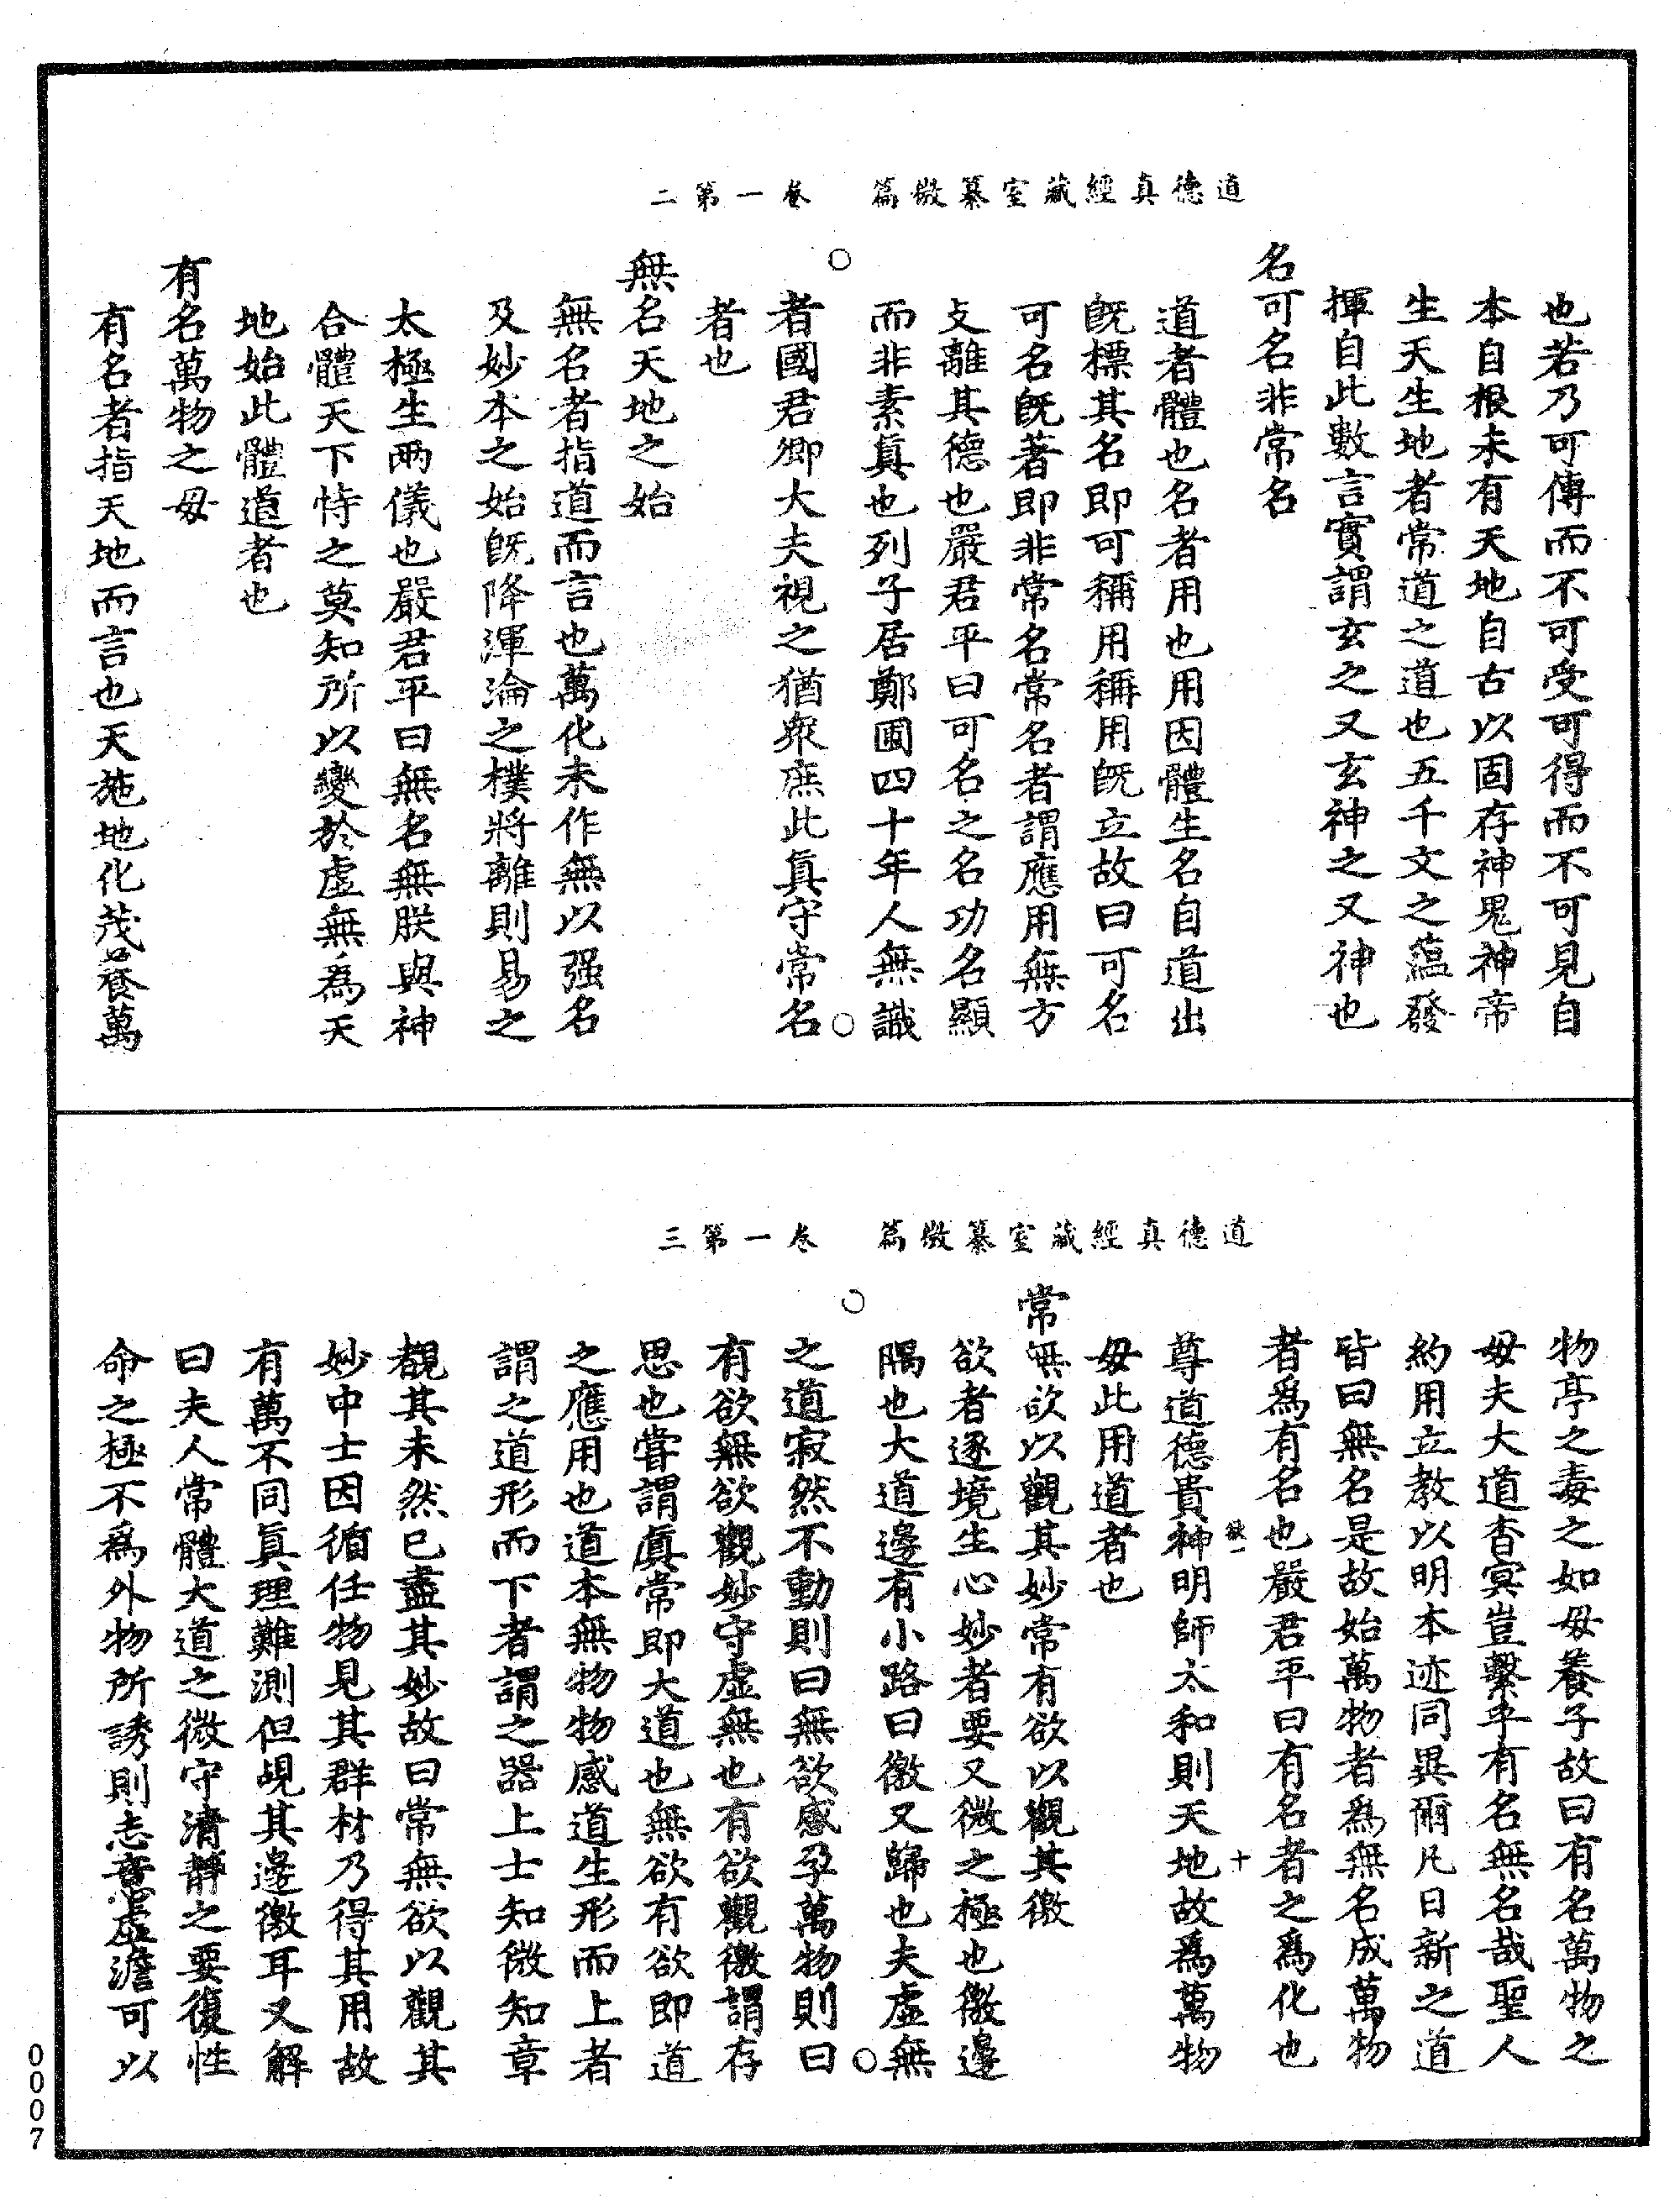 道德真經藏室纂微篇　卷一第二
也若乃可傳而不可受可得而不可見自
本自根未有天地自古以固存神鬼神帝
生天生地者常道之道也五千文之蕴發
揮自此數言實謂玄之又玄神之又神也
名可名非常名
道者體也名者用也用因體生名自道出
旣標其名即可稱用稱用旣立故曰可名
可名旣著即非常名常名者謂應用無方
支離其德也嚴君平曰可名之名功名顯
而非素真也列子居鄭圃四十年人無識
者國君卿大夫視之猶衆庶此真守常名
者也
無名天地之始
無名者指道而言也萬化未作無以强名
及妙本之始旣降渾淪之樸將離則易之
太極生兩儀也嚴君平曰無名無朕與神
合體天下恃之莫知所以變於虛無為天
地始此體道者也
有名萬物之母
有名者指天地而言也天施地化茂養萬
道德真經藏室纂微篇　卷一第三
物亭之毒之如母養子故曰有名萬物之
母夫大道杳冥豈繫乎有名無名哉聖人
約用立教以明本迹同異爾凡日新之道
皆曰無名是故始萬物者爲無名成萬物
者爲有名也嚴君平曰有名者之爲化也
尊道德貴神明師太和則天地故爲萬物
母此用道者也
常無欲以觀其妙常有欲以觀其徼
欲者逐境生心妙者要又微之極也徼邊
隅也大道邊有小路曰徼又歸也夫虛無
之道寂然不動則曰無欲感孕萬物則曰
有欲無欲觀妙守虛無也有欲觀徼謂存
思也嘗謂真常即大道也無欲有欲即道
之應用也道本無物物感道生形而上者
謂之道形而下者謂之器上士知微知章
覩其未然已盡其妙故曰常無欲以觀其
妙中士因循任物見其群材乃得其用故
有萬不同眞理難測但覘其邊徼耳又解
曰夫人常體大道之微守清靜之要復性
命之極不爲外物所誘則志意虛澹可以
0007